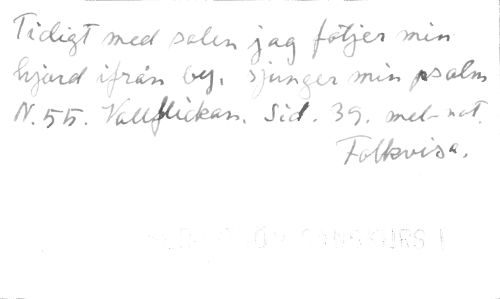 Tidigt med solen jag följer min
hjord ifrån by, sjunger min psalm
N. 55. Vallflickan. Sid. 39. mel-not.
Folkvisa.